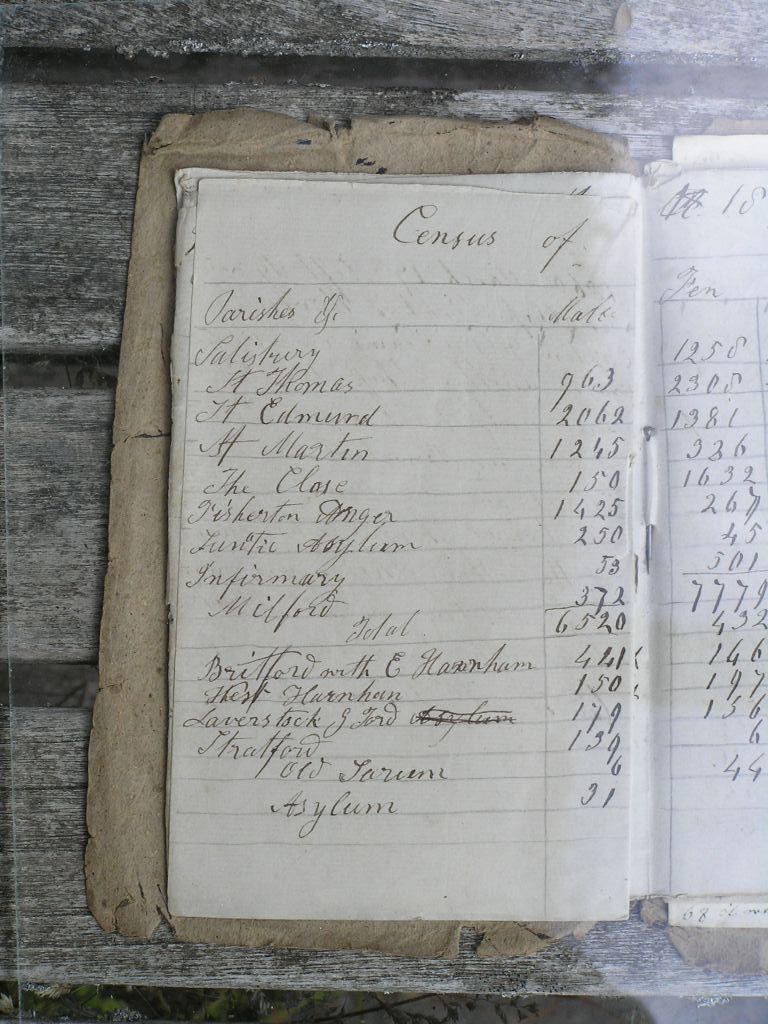 Census of
Parishes &c Males
Salisbury
St Thomas 963
St Edmund 2062
St Martin 1245
The Close 150
Fisherton Anger 1425
Luntic Asylum 250
Infirmary 53
Milford 372
Total 6520
Britford with E Harnham 421
West Harnham 150
Laverstock & Ford Asylum 179
Stratford 139
Old Sarum 6
Asylum 31
18
Fem
1258
2308
1381
326
1632
267
45
501
7779
432
146
197
156
6
44
68